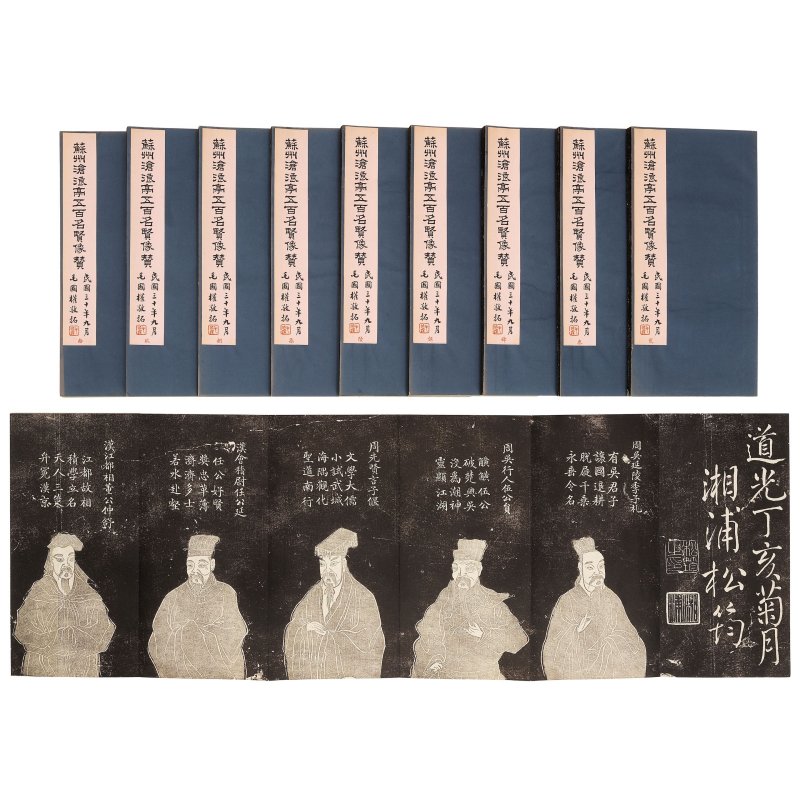 蘇州滄浪亭五百名賢像贊
民國三十年九月
毛國權敬拓
貳
蘇州滄浪亭五百名賢像贊
民國三十年九月
毛國權敬拓
叁
蘇州滄浪亭五百名賢像贊
民國三十年九月
毛國權敬拓
肆
蘇州滄浪亭五百名賢像贊
民國三十年九月
毛國權敬拓
伍
蘇州滄浪亭五百名賢像贊
民國三十年九月
毛國權敬拓
陸
蘇州滄浪亭五百名賢像贊
民國三十年九月
毛國權敬拓
柒
蘇州滄浪亭五百名賢像贊
民國三十年九月
毛國權敬拓
捌
蘇州滄浪亭五百名賢像贊
民國三十年九月
毛國權敬拓
玖
蘇州滄浪亭五百名賢像贊
民國三十年九月
毛國權敬拓
拾
道光丁亥菊月
湘浦松筠
周吳延陵季子札
有吳君子
讓國退耕
脫屣千乘
永垂令名
周吳行人伍公員
伍公
破楚興吳
沒為潮神
靈顯江湖
周先賢言子偃
文學大儒
小試武城
海隅觀化
聖道南行
漢會稽尉任公延
任公好賢
奬忠卑薄
濟濟多士
若水赴壑
漢江都相董公仲舒
江都故相
積學立名
天人三策
弁冕漢京